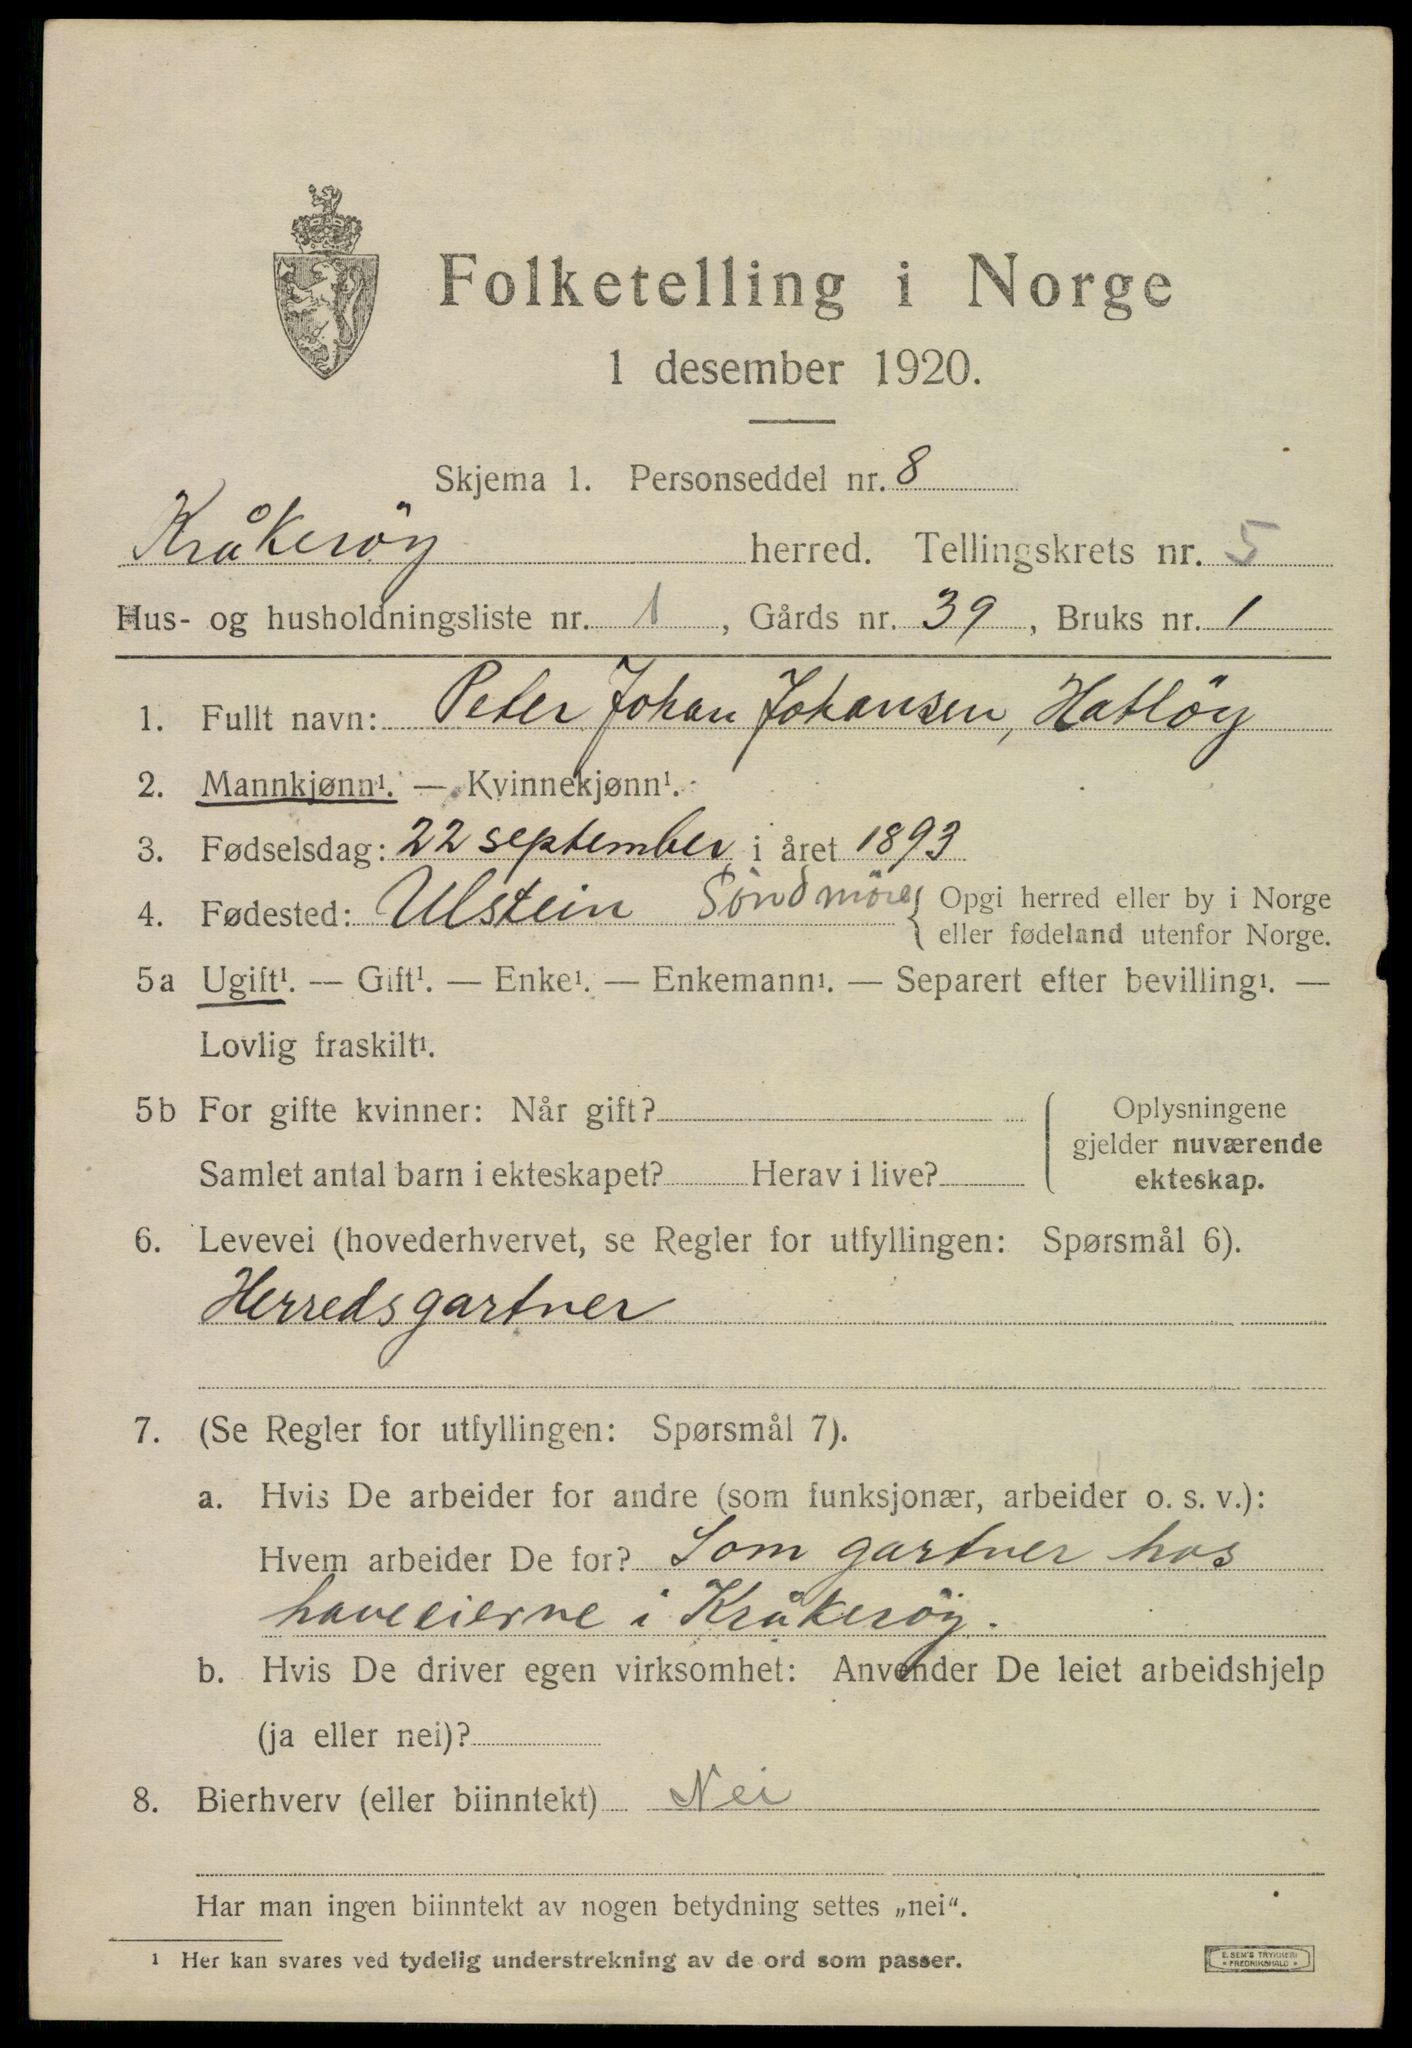 Folketelling i Norge
1 desember 1920.
Skjema 1. Personseddel nr. 8
Kråkeröy herred. Tellingskrets nr. 5
Hus- og husholdningsliste nr. 1, Gårds nr. 39, Bruks nr. 1
1. Fullt navn: Peter Johan Johansen, Hatlöy
2. Mannkjønn¹. — Kvinnekjønn¹.
3. Fødselsdag: 22 september i året 1893
4. Fødested: Ulstein Söndmöre { Opgi herred eller by i Norge
eller fødeland utenfor Norge.
5a Ugift¹. — Gift¹. — Enke¹. — Enkemann¹. — Separert efter bevilling¹. —
Lovlig fraskilt¹.
5b For gifte kvinner: Når gift?
Samlet antal barn i ekteskapet? Herav i live?
Oplysningene
gjelder nuværende
ekteskap.
6. Levevei (hovederhvervet, se Regler for utfyllingen: Spørsmål 6).
Herredsgartner
7. (Se Regler for utfyllingen: Spørsmål 7).
a. Hvis De arbeider for andre (som funksjonær, arbeider o. s. v.):
Hvem arbeider De for? Som gartner hos
haveeierne i Kråkeröy.
b. Hvis De driver egen virksomhet: Anvender De leiet arbeidshjelp
(ja eller nei)?
8. Bierhverv (eller biinntekt) Nei
Har man ingen biinntekt av nogen betydning settes „nei“.
¹ Her kan svares ved tydelig understrekning av de ord som passer.
E. SEM'S TRYKKERI
FREDRIKSHALD